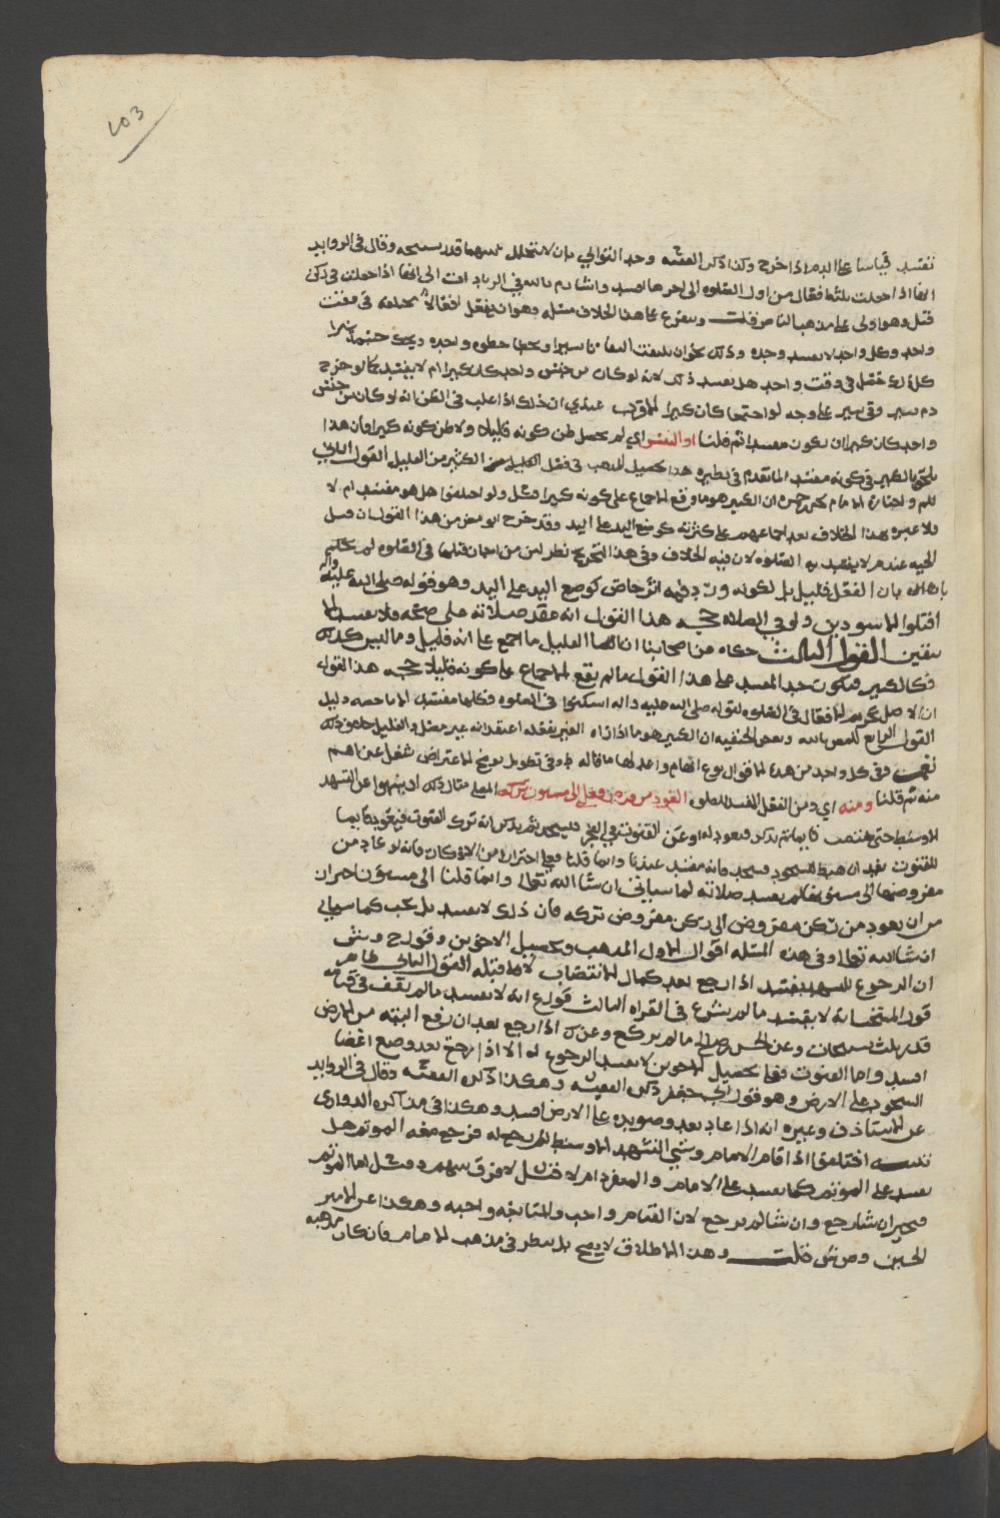 103
تفسد قياسا على الدم اذا خرج وكذا ذكر الفقيه وحد التوالي بان لا يتخلل بينهما قدر تسبيحه وقال في الزوايد
قتل وهو اولى على مذهب الناصر قلت ويتفرع على هذا الخلاف مسئله وهو ان يفعل افعالا مختلفه في وقت
واحد وكل واحد لا يفسد وحده وذلك نحو ان يلتفت التفاتا يسيرا ويخطا خطوه واحده ويحك جسمه
كل ذلك حصل في وقت واحد هل يفسد ذلك لانه لو كان من جنس واحد كان كثيرا ام لا يفسد كما لو خرج
دم يسير وقي يسير على وجه لو اجتمعا كان كثيرا الاقرب عندي ان ذلك اذا غلب في الظن انه لو كان من جنس
واحد كان كثيرا ان يكون مفسدا ثم قلنا او التبس اي لم يحصل ظن كونه قليلا ولا ظن كونه كثيرا فان هذا
يلحق بالكثير في كونه مفسدا لما تقدم في نظيره هذا تحصيل المذهب في فصل القليل من الكثير من الفعل القول الثاني
للم واختاره الامام يحي ان الكثير هو ما وقع الاجماع على كونه كثيرا ولو اختلفوا هل هو مفسد ام لا
فلا عبره بهذا الخلاف بعد اجماعهم على كثرته كوضع اليد على اليد وقد خرج ابو مضر من هذا القول ان قتل
الحيه عندم لا يفسد به الصلوه لان فيه الخلاف وفي هذا التخريج نظر لان من اجاز قتلها في الصلوه لم يحكم
بان الفعل قليل بل لكونه ورد فيه اثر خاص كوضع اليد على اليد وهو قوله صلى الله عليه واله
اقتلوا الاسودين ولو في الصلاه حجه هذا القول انه عقد صلاته على صحه فلا تفسد الا
بيقين القول الثالث حكاه من اصحابنا ان القليل ما اجمع على انه قليل وما ليس كذلك
فكالكثير فيكون حد المفسد على هذا القول ما لم يقع الاجماع على كونه قليلا حجه هذا القول
ان الاصل تحريم الافعال في الصلوه لقوله صلى الله عليه واله اسكنوا في الصلوه فكلها مفسد الا ما خصه دليل
القول الرابع للمص بالله وبعض الحنفيه ان الكثير هو ما اذا رآه الغير يفعله اعتقد انه غير مصل والقليل خلاف ذلك
نعم وفي كل واحد من هذه الاقوال نوع ابهام واعدلها ما قاله ط وفي تطويل توضيح الاعتراض شغل عن اهم
منه ثم قلنا ومنه اي ومن الفعل المفسد للصلوه العود من فرض فعلي الى مسنون تركه المصلي مثال ذلك ان يسهوا عن التشهد
الاوسط حتى ينتصب قايما ثم يذكر فيعود له او عن القنوت في الفجر فيسجد ثم يذكر انه ترك القنوت فيعود قايما
للقنوت بعد ان هبط للسجود فسجد فانه مفسد عندنا وانما قلنا فعلي احترازا من الاذكار فانه لو عاد من
مفروضها الى مسنونها لم يفسد صلاته لما سياتي ان شا الله تعالى وانما قلنا الى مسنون احتراز
من ان يعود من ركن مفروض الى ركن مفروض تركه فان ذلك لا يفسد بل يجب كما سياتي
ان شا الله تعالى وفي هذه المسئله اقوال الاول المذهب وتحصيل الاخوين وقول ح وش
ان الرجوع للتشهد يفسد اذا رجع بعد كمال الانتصاب لا ما قبله القول الثاني ظاهر
قول المنتخب انه لا يفسد ما لم يشرع في القراه الثالث قول ع انه لا يفسد ما لم يقف في قيامه
قدر ثلث تسبيحات وعن الحسن يرجع ما لم يركع وعن ك اذا رجع بعد ان رفع البته من الارض
افسد واما القنوت فعلى تحصيل الاخوين لا يفسد الرجوع له الا اذا رجع بعد وضع اعضا
السجود على الارض وهو قول ذكر الفقيه وهكذا ذكره الفقيه وقال في الزوايد
عن الاستاذ وغيره انه اذا عاد بعد وضع يده على الارض افسد وهكذا في مذاكره الدواري
تنبيه اختلفوا اذا قام الامام ونسي التشهد الاوسط ثم رجع له فرجع معه الموتم هل
يفسد على الموتم كما يفسد على الامام والمنفرد ام لا فقيل لا فرق بينهم وقيل اما الموتم
فمخير ان شا رجع وان شا لم يرجع لان القيام واجب والمتابعه واجبه وهكذا عن الامير
الحسين وص ش قلت وهذا الاطلاق لا يصح بل ينظر في مذهب الامام فان كان مذهبه